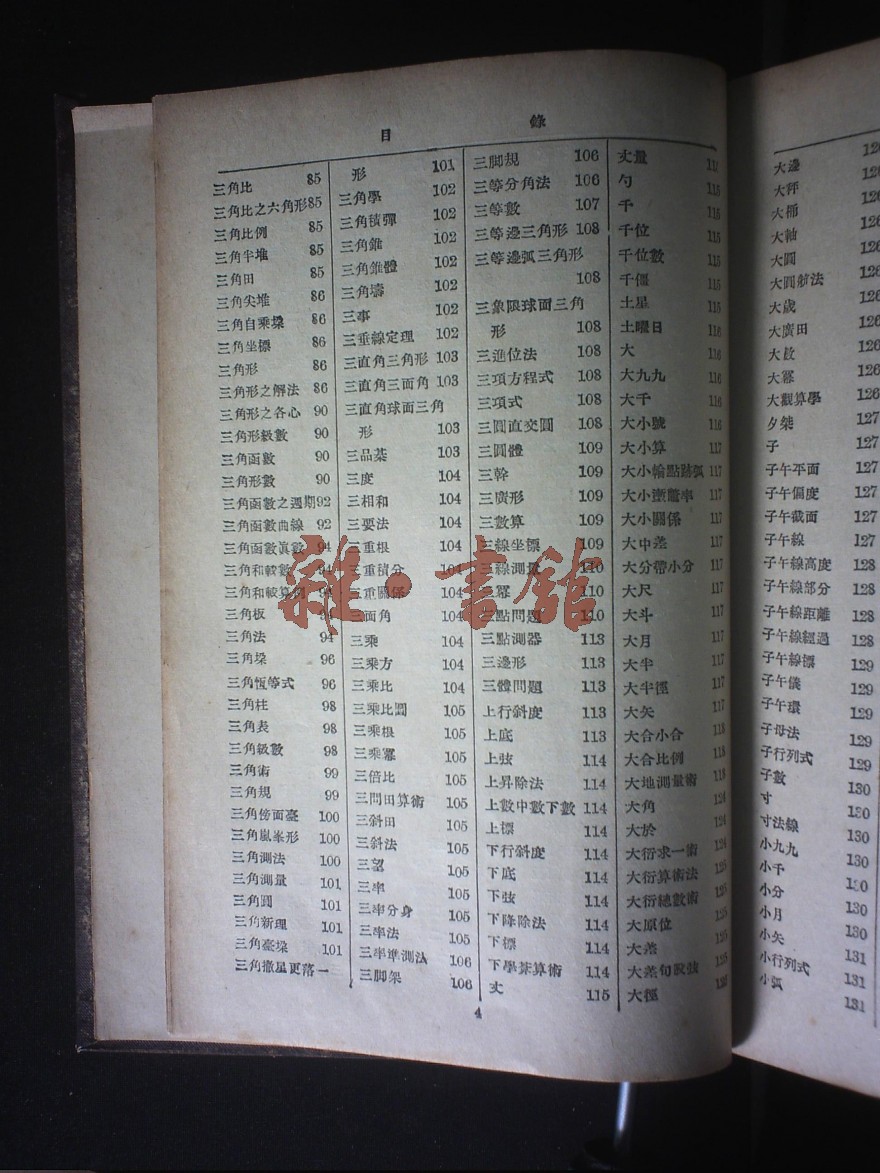 目 錄
三角比 85
三角比之六角形85
三角比例 85
三角半堆 85
三角田 85
三角尖堆 86
三角自乘垜 86
三角坐標 86
三角形 86
三角形之解法 86
三角形之各心 90
三角形級數 90
三角函數 90
三角形數 90
三角函數之週期92
三角函數曲線 92
三角函數眞數 94
三角和較數 94
三角和較算例
三角板
三角法 94
三角垜 96
三角恆等式 96
三角柱 98
三角表 98
三角級數 98
三角術 99
三角規 99
三角傍面臺 100
三角嵐峯形 100
三角測法 100
三角測量 101
三角圓 101
三角新理 101
三角臺垜 101
三角撒星更落一
形 101
三角學 102
三角積彈 102
三角錐 102
三角錐體 102
三角壔 102
三事 102
三垂線定理 102
三直角三角形 103
三直角三面角 103
三直角球面三角
形 103
三品菜 103
三度 104
三相和 104
三要法 104
三重根 104
三重積分 104
三重關係 104
三面角 104
三乘 104
三乘方 104
三乘比 104
三乘比圖 105
三乘根 105
三乘冪 105
三倍比 105
三問田算術 105
三斜田 105
三斜法 105
三望 105
三率 105
三率分身 105
三率法 105
三率準測法 106
三脚架 106
三脚規 106
三等分角法 106
三等數 107
三等邊三角形 108
三等邊弧三角形
108
三象限球面三角
形 108
三進位法 108
三項方程式 108
三項式 108
三圓直交圓 108
三圓體 109
三幹 109
三廣形 109
三數算 109
三線坐標 109
三線測量 110
三冪 110
三點問題 110
三點測器 113
三邊形 113
三體問題 113
上行斜度 113
上底 113
上弦 114
上昇除法 114
上數中數下數 114
上標 114
下行斜度 114
下底 114
下弦 114
下降除法 114
下標 114
下學葊算術 114
丈 115
丈量
勺 115
千 115
千位 115
千位數 115
千僵 115
土星 115
土曜日 116
大 116
大九九 116
大千 116
大小號 116
大小算 117
大小輪點跡弧 117
大小盝鼈率 117
大小關係 117
大中差 117
大分帶小分 117
大尺 117
大斗 117
大月 117
大半 117
大半徑 117
大矢 117
大合小合 118
大合比例 118
大地測量術 118
大角 124
大於 124
大衍求一術 124
大衍算術法 125
大衍總數術 125
大原位 125
大差 125
大差句股弦 125
大徑
4
大邊 126
大秤
大桶 126
大軸 126
大圓 126
大圓航法 126
大歲 126
大廣田 126
大鼓 126
大冪 126
大觀算學 126
夕桀 127
子 127
子午平面 127
子午偏度 127
子午截面 127
子午線 127
子午線高度 128
子午線部分 128
子午線距離 128
子午線經過 128
子午線標 129
子午儀 129
子午環 129
子母法 129
子行列式 129
子數 130
寸 130
寸法線 130
小九九 130
小千 130
小分 130
小月 130
小矢 131
小行列式 131
小弧 131
雜·書舘